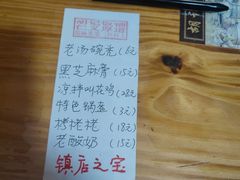 老汤碗秃(8元
黑芝麻膏(15元)
凉拌叫花鸡(28元
特色锅盔(3元)
栲栳栳(18元)
老酸奶(15元)
镇店之宝